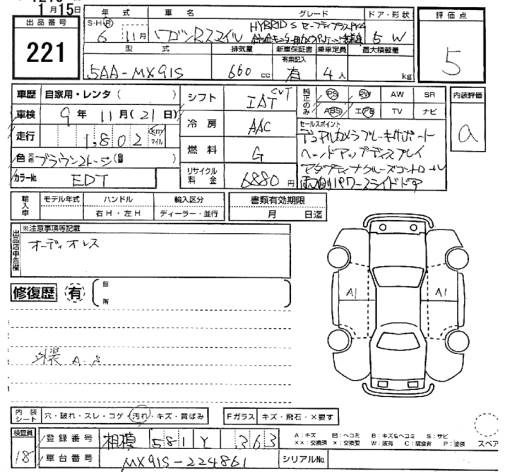 月15日
出品番号
221
年式 車名 グレード ドア・形状
S・H・R 6 11月 ワゴンRスマイル HYBRID S 5 W
評価点
5
型式 排気量 新車保証書 乗車定員 最大積載量
有無記入
5AA-MX91S 660 cc 有 4人 kg
車歴 自家用・レンタ
車検 9年11月(21)日
走行 1,802 km マイル
色 ブラウン2トーン
カラーNo. EDT
シフト IAT CVT
冷房 AAC
燃料 G
リサイクル料金 6880円
純正のみ PS PW AW SR
ABS エアB TV ナビ
セールスポイント
デュアルカメラブレーキサポート
ヘッドアップディスプレイ
アダプティブクルーズコントロール
両側パワースライドドア
内装評価
a
輸入車 モデル年式 ハンドル 輸入区分 書類有効期限
右H・左H ディーラー・並行 月 日迄
出品店申告欄
※注意事項等記載
オーディオレス
修復歴 有 箇所
外装 A.S
A1 A1
内装シート 穴・破れ・スレ・コゲ 汚れ キズ・黄ばみ Fガラス キズ・飛石・×要す
検査員 18
登録番号 相模 581 Y 363
車台番号 MX91S-224861 シリアルNo.
A:キズ U:ヘコミ B:キズ&ヘコミ S:サビ
××:交換済 ×:要交換 W:波有 C:腐食 P:塗装 スペア